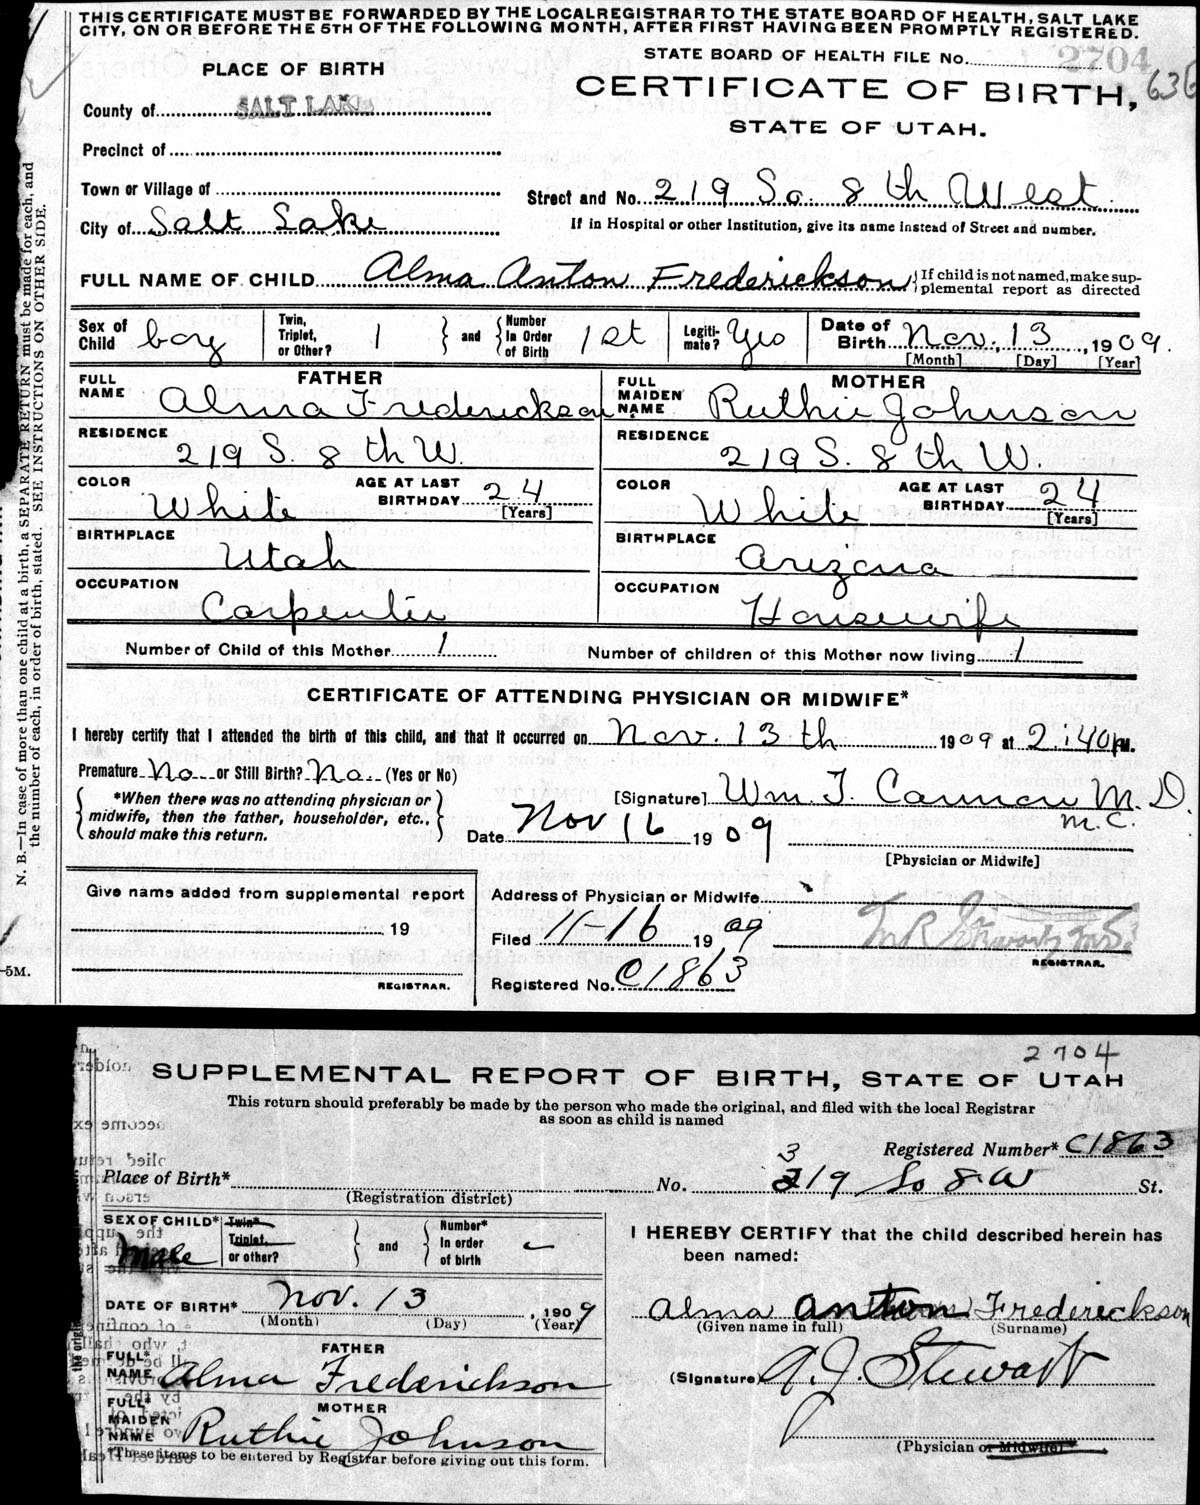 THIS CERTIFICATE MUST BE FORWARDED BY THE LOCAL REGISTRAR TO THE STATE BOARD OF HEALTH, SALT LAKE
CITY, ON OR BEFORE THE 5TH OF THE FOLLOWING MONTH, AFTER FIRST HAVING BEEN PROMPTLY REGISTERED.
STATE BOARD OF HEALTH FILE No. 2704
PLACE OF BIRTH
CERTIFICATE OF BIRTH,
STATE OF UTAH.
County of SALT LAKE
Precinct of
Town or Village of
Street and No. 219 So. 8th West
City of Salt Lake
If in Hospital or other Institution, give its name instead of Street and number.
FULL NAME OF CHILD Alma Anton Frederickson { If child is not named, make sup-
plemental report as directed
Sex of Child boy
Twin, Triplet, or Other? 1 } and { Number In Order of Birth 1st
Legiti-mate? Yes
Date of Birth Nov. 13, 1909.
[Month] [Day] [Year]
FATHER
FULL NAME Alma Frederickson
MOTHER
FULL MAIDEN NAME Ruthie Johnson
RESIDENCE 219 S. 8th W.
RESIDENCE 219 S. 8th W.
COLOR White AGE AT LAST BIRTHDAY 24 [Years]
COLOR White AGE AT LAST BIRTHDAY 24 [Years]
BIRTHPLACE Utah
BIRTHPLACE Arizona
OCCUPATION Carpenter
OCCUPATION Housewife
Number of Child of this Mother 1
Number of children of this Mother now living 1
CERTIFICATE OF ATTENDING PHYSICIAN OR MIDWIFE*
I hereby certify that I attended the birth of this child, and that it occurred on Nov. 13th 1909 at 2:40 M.
Premature No or Still Birth? No. (Yes or No)
{ *When there was no attending physician or
midwife, then the father, householder, etc.,
should make this return. }
[Signature] Wm. T. M. D.
M.C.
Date Nov 16 1909
[Physician or Midwife]
Give name added from supplemental report
19
REGISTRAR.
Address of Physician or Midwife
Filed 11-16 1909
REGISTRAR.
Registered No. C1863
N. B.—In case of more than one child at a birth, a SEPARATE RETURN must be made for each, and
the number of each, in order of birth, stated. SEE INSTRUCTIONS ON OTHER SIDE.
-5M.
2704
SUPPLEMENTAL REPORT OF BIRTH, STATE OF UTAH
This return should preferably be made by the person who made the original, and filed with the local Registrar
as soon as child is named
Registered Number* C1863
Place of Birth* No. 319 So 8 W St.
(Registration district)
SEX OF CHILD* Male
Twin* Triplet, or other? } and { Number* In order of birth
I HEREBY CERTIFY that the child described herein has
been named:
DATE OF BIRTH* Nov. 13, 1909
(Month) (Day) (Year)
Alma Anton Frederickson
(Given name in full) (Surname)
FATHER
FULL* NAME Alma Frederickson
(Signature) A. J. Stewart
MOTHER
FULL* MAIDEN NAME Ruthie Johnson
(Physician or Midwife)*
*These items to be entered by Registrar before giving out this form.